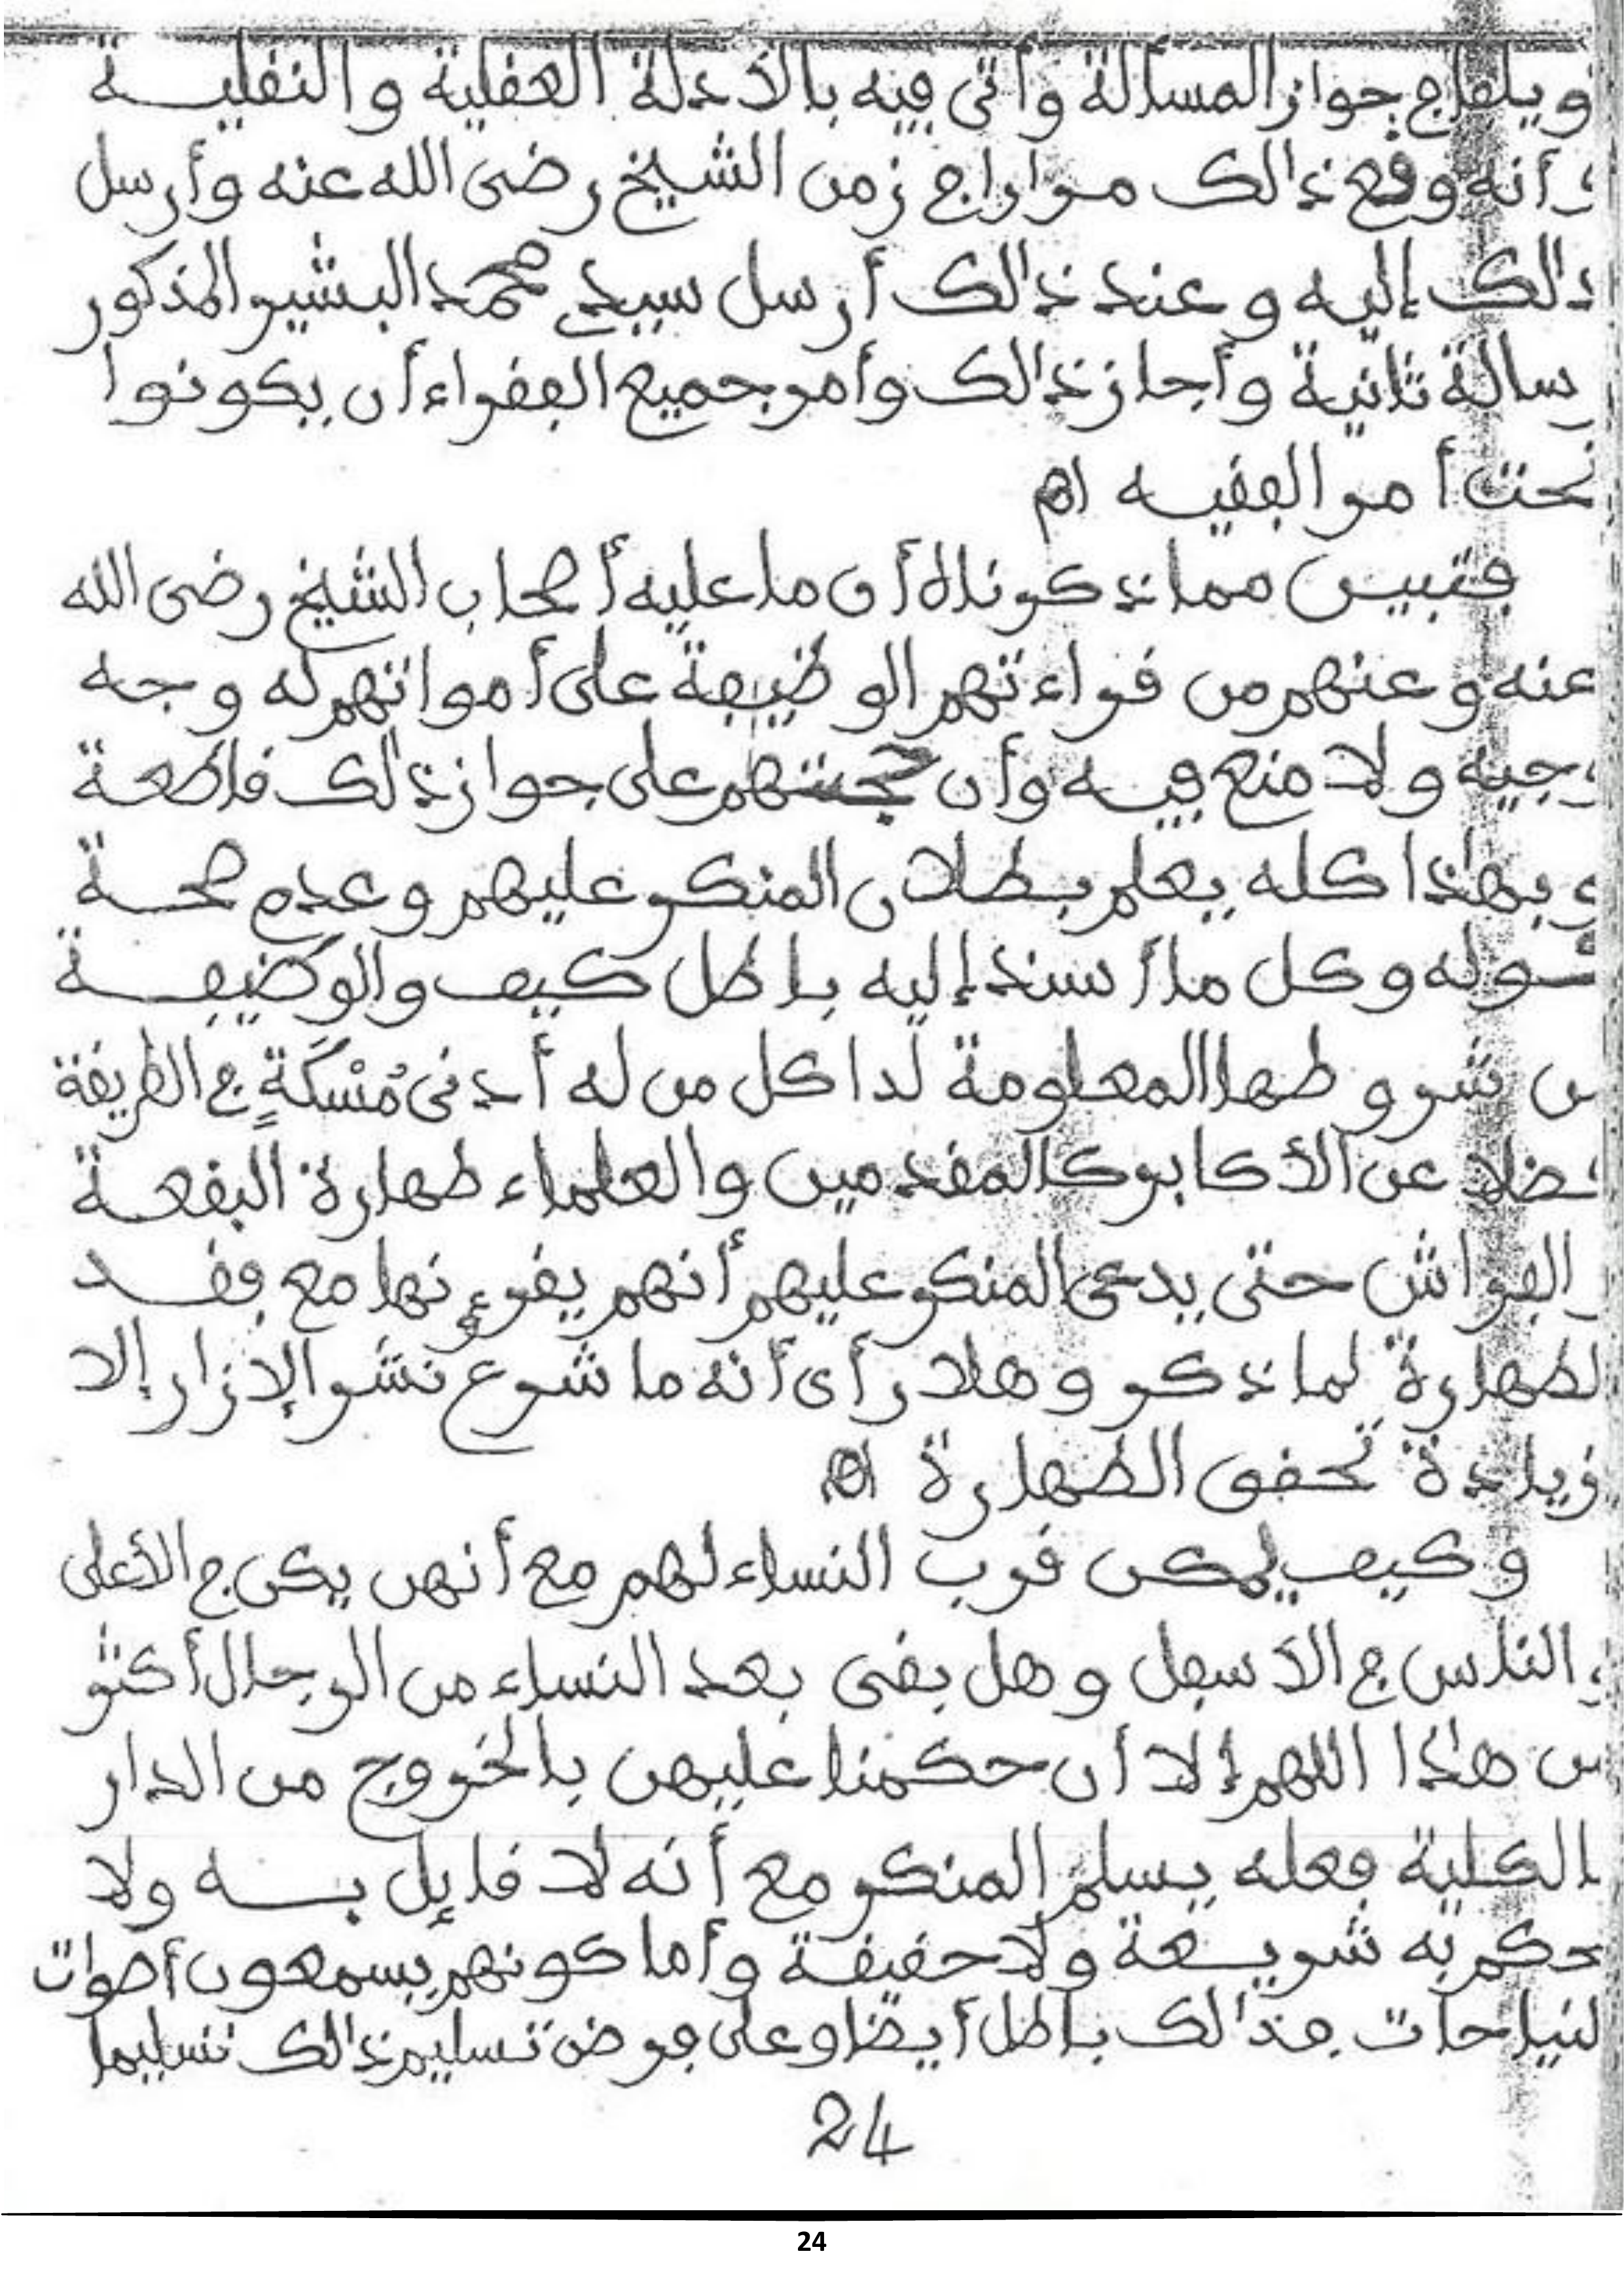 ويلا في جواز المسألة وأتى فيه بالأدلة العقلية والنقليــة
وأنه وقع ذالك مرارا في زمن الشيخ رضى الله عنه وأرسل
ذالك إليه وعند ذالك أرسل سيدي محمد البشير المذكور
رسالة ثانية وأجاز ذالك وأمر جميع الفقراء أن يكونوا
تحت أمر الفقيه اهـ
فتبين مما ذكرناه أن ما عليه أصحاب الشيخ رضى الله
عنه وعنهم من قراءتهم الوظيفة على أمواتهم له وجه
وجيه ولا منع فيه وأن حجتهم على جواز ذالك قاطعة
وبهذا كله يعلم بطلان المنكر عليهم وعدم صحة
قوله وكل ما أسند إليه باطل كيف والوظيفــة
من شروطها المعلومة لدا كل من له أدنى مُسْكَةٍ في الطريقة
فضلا عن الأكابر كالمقدمين والعلماء طهارة البقعــة
والفراش حتى يدعى المنكر عليهم أنهم يقرءونها مع فقــد
الطهارة لما ذكر وهلا رأى أنه ما شرع نشر الإزار إلا
لزيادة تحقق الطهارة اهـ
وكيف يمكن قرب النساء لهم مع أنهن يكن في الأعلى
والناس في الأسفل وهل بقى بعد النساء من الرجال أكثر
من هذا اللهم إلا أن حكمنا عليهن بالخروج من الدار
بالكلية فعله يسلم المنكر مع أنه لا قايل بــه ولا
حكم به شريــعة ولا حقيقة وأما كونهم يسمعون أصوات
النياحات فذالك باطل أيضا وعلى فرض تسليم ذالك تسليما
24
24